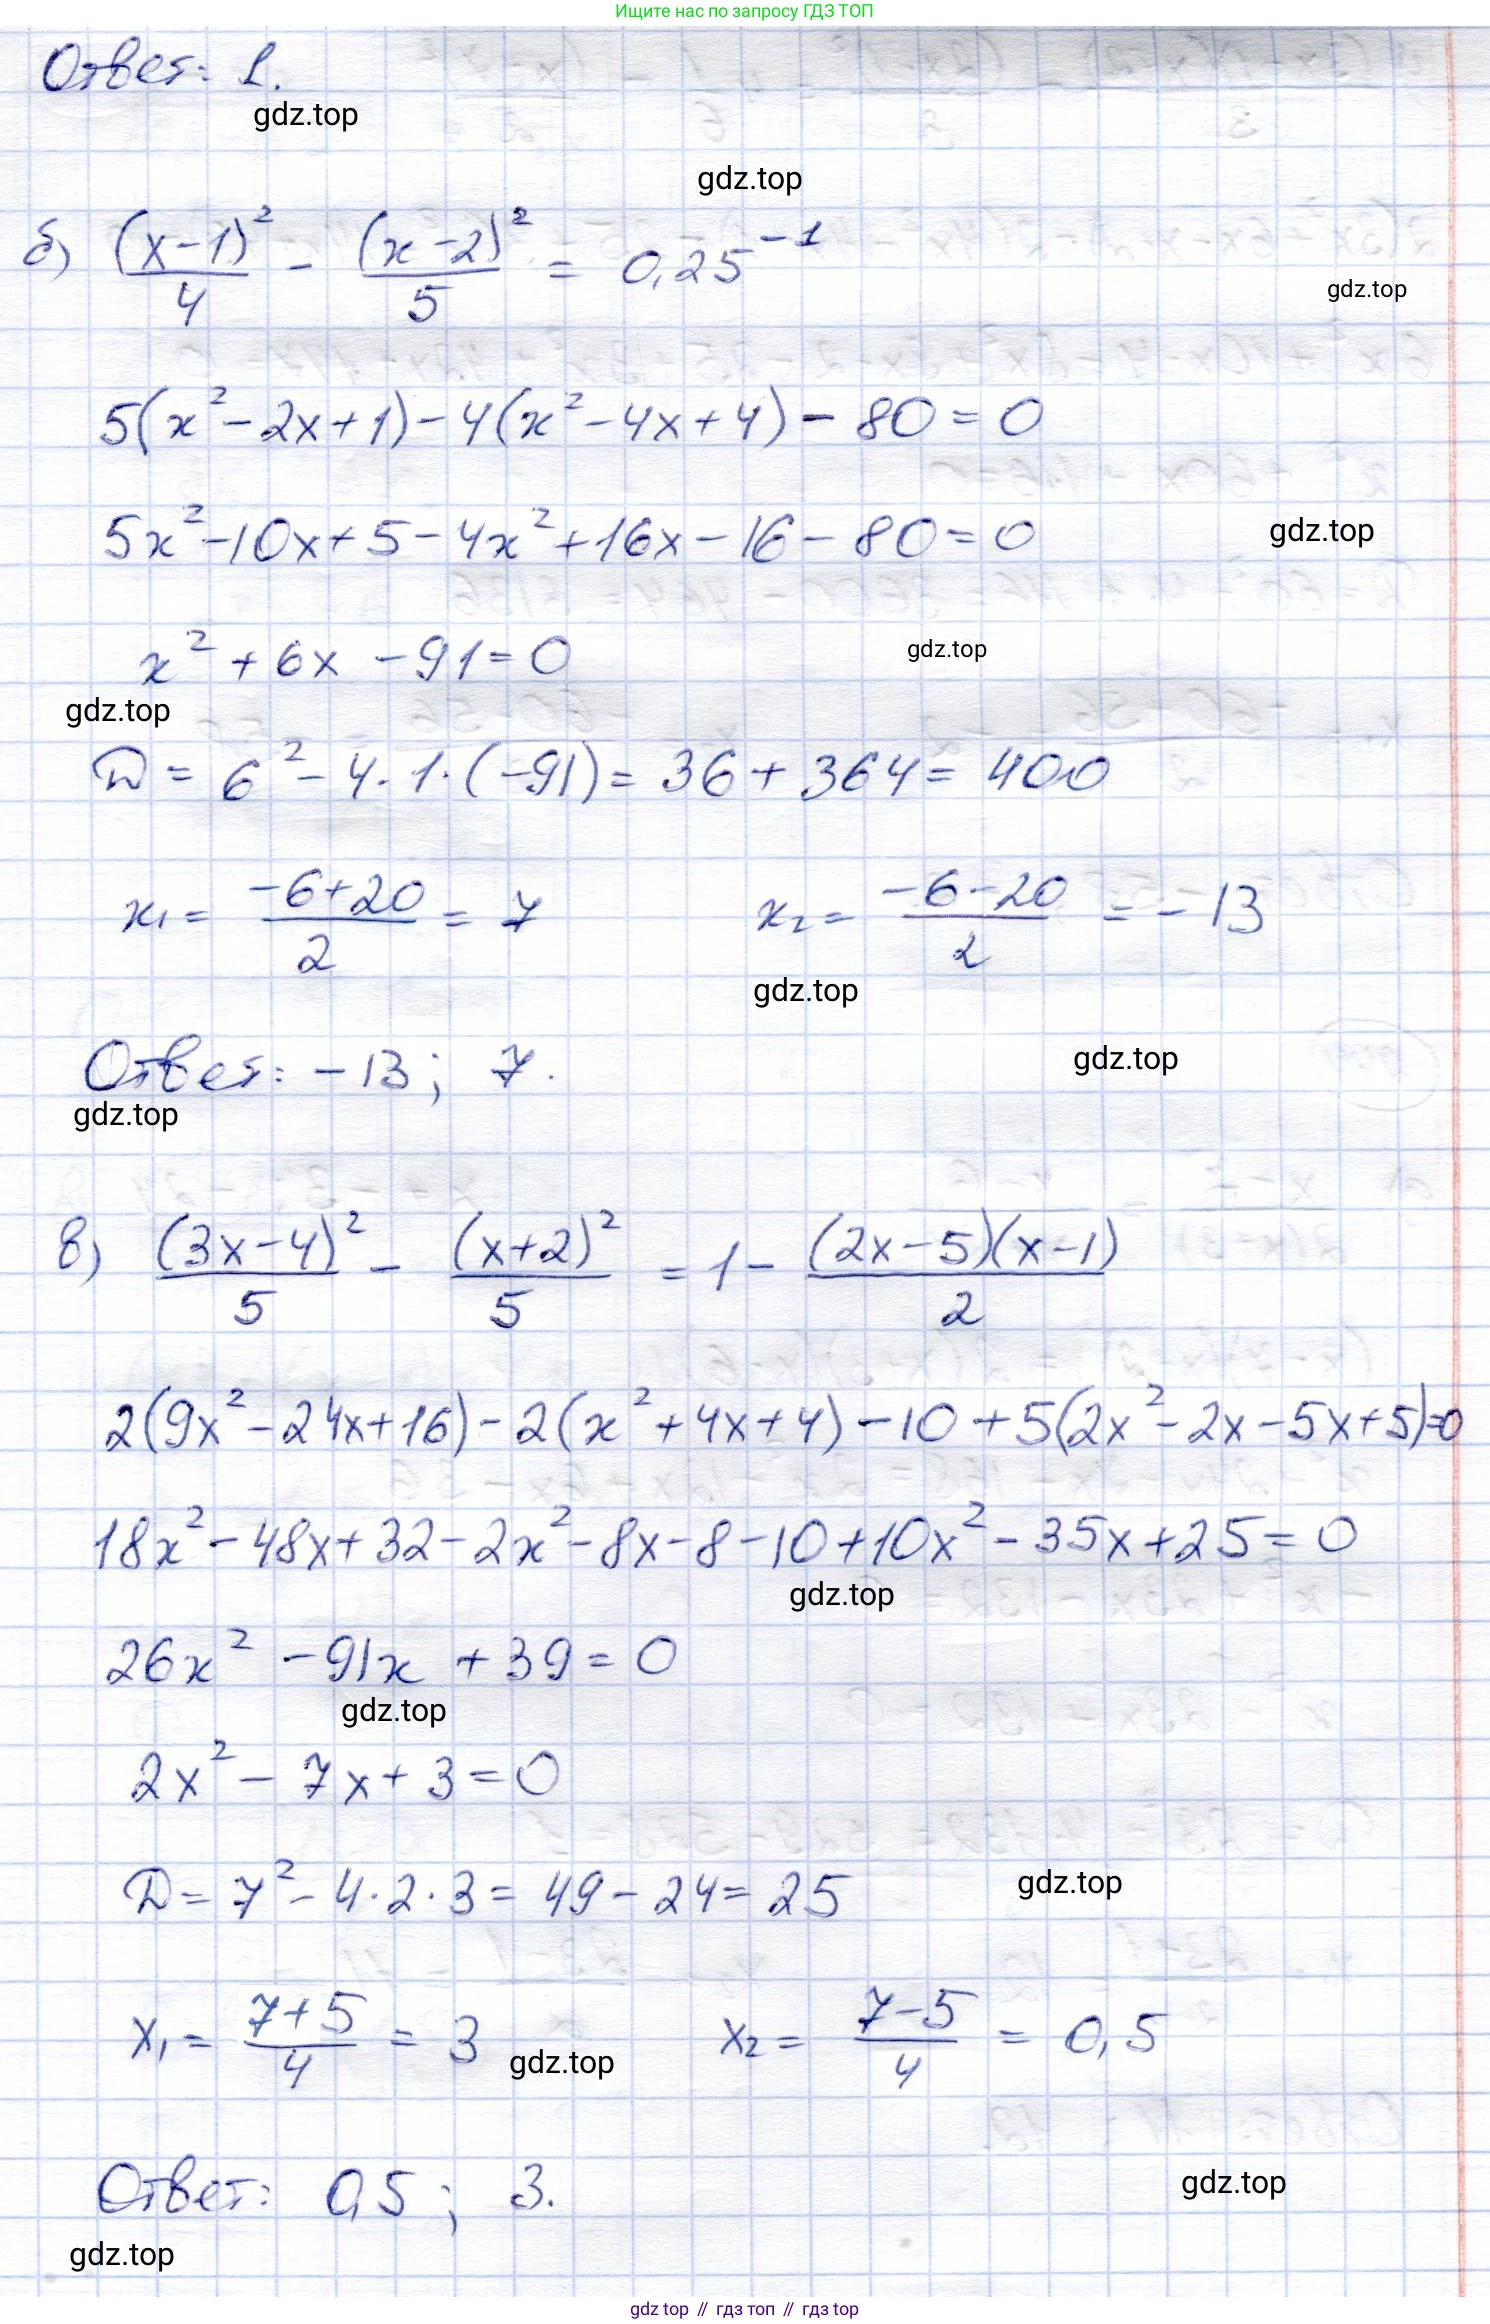 Ищите нас по запросу ГДЗ ТОП
Ответ: 1.
gdz.top
gdz.top
б) (x-1)²/4 - (x-2)²/5 = 0,25⁻¹
gdz.top
5(x²-2x+1)-4(x²-4x+4)-80=0
5x²-10x+5-4x²+16x-16-80=0
gdz.top
x²+6x-91=0
gdz.top
gdz.top
D=6²-4·1·(-91)=36+364=400
x₁=(-6+20)/2=7 x₂=(-6-20)/2=-13
gdz.top
Ответ: -13; 7.
gdz.top
gdz.top
в) (3x-4)²/5 - (x+2)²/5 = 1 - (2x-5)(x-1)/2
2(9x²-24x+16)-2(x²+4x+4)-10+5(2x²-2x-5x+5)=0
18x²-48x+32-2x²-8x-8-10+10x²-35x+25=0
gdz.top
26x²-91x+39=0
gdz.top
2x²-7x+3=0
D=7²-4·2·3=49-24=25
gdz.top
x₁=(7+5)/4=3 x₂=(7-5)/4=0,5
gdz.top
Ответ: 0,5; 3.
gdz.top
gdz.top
gdz top // гдз топ // гдз top